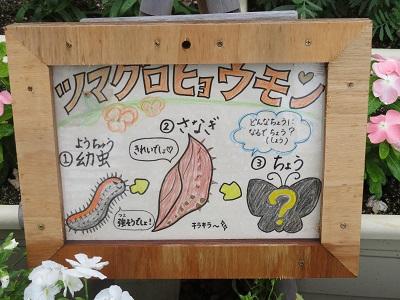 ツマグロヒョウモン♡
①ようちゅう
幼虫
強そうでしょ!
②さなぎ
きれいでしょ♡
キラキラ〜
どんなちょうに
なるでちょう?
(しょう)
③ちょう
?